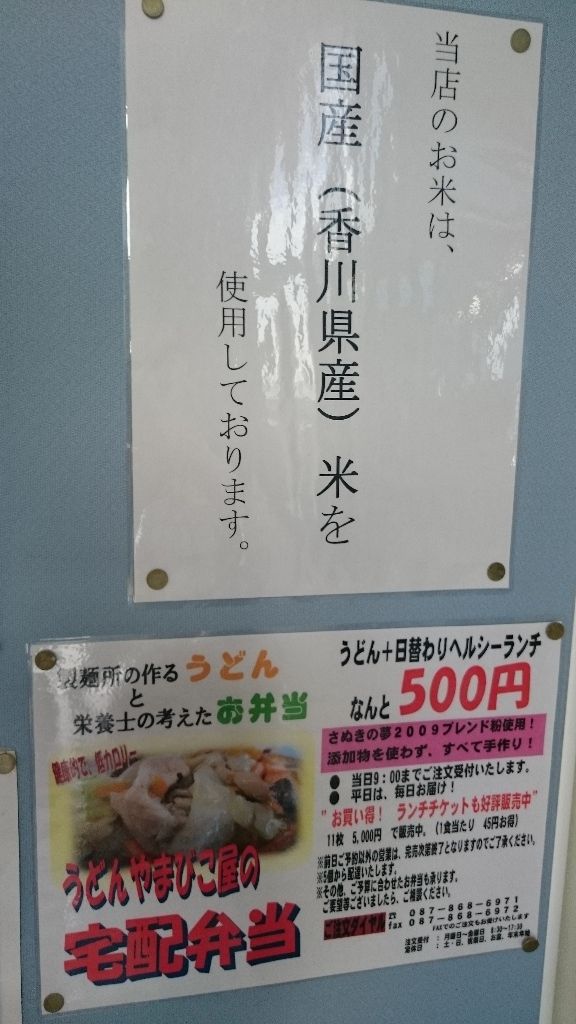 当店のお米は、
国産（香川県産）米を
使用しております。
製麺所の作るうどん
と
栄養士の考えたお弁当
健康的で、低カロリー
うどんやまびこ屋の
宅配弁当
うどん＋日替わりヘルシーランチ
なんと500円
さぬきの夢2009ブレンド粉使用！
添加物を使わず、すべて手作り！
● 当日9：00までご注文受付いたします。
● 平日は、毎日お届け！
"お買い得！ ランチチケットも好評販売中"
11枚 5,000円 で販売中。（1食当たり 45円お得）
※前日ご予約以外の営業は、完売次第終了となりますのでご了承ください。
※5個から配達いたします。
※その他、ご予算に合わせたお弁当も承ります。
ご要望等ございましたら、ご相談ください。
ご注文ダイヤル ☎ 087－868－6971
fax 087－868－6972
FAXでのご注文もお受けいたします
注文受付 ： 月曜日～金曜日 8:30～17:30
定休日 ： 土・日、祝祭日、お盆、年末年始